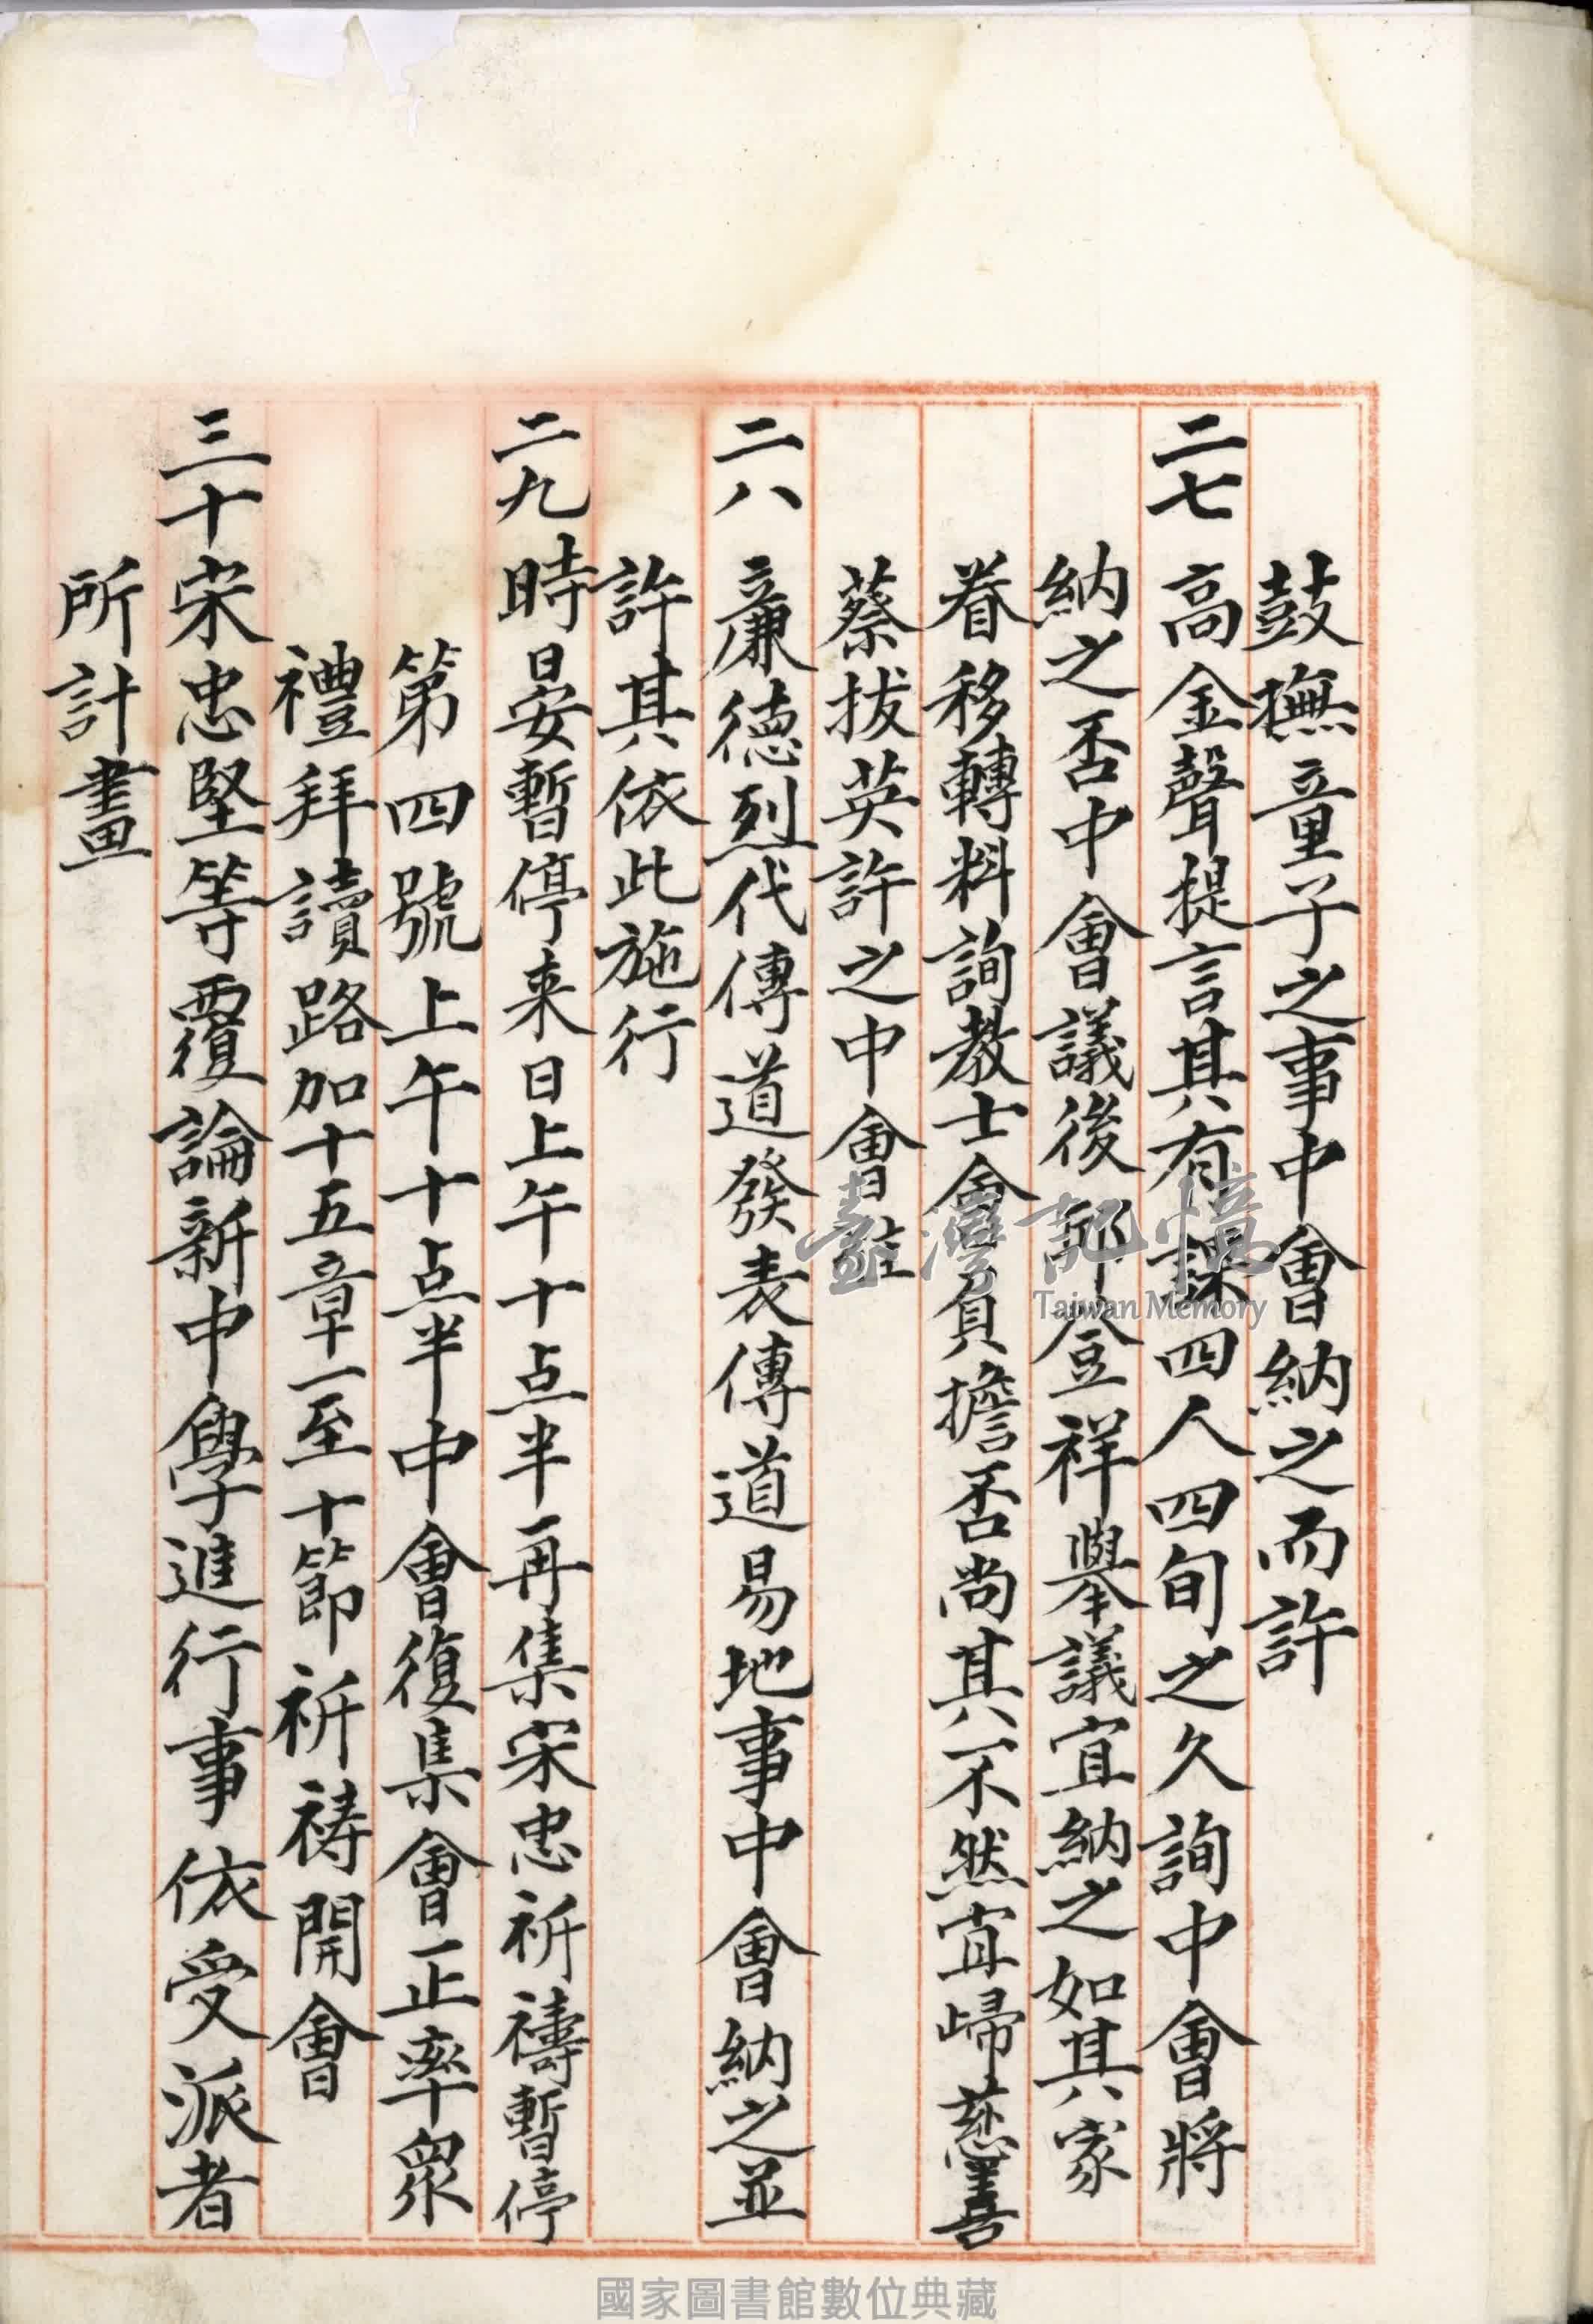 鼓撫童子之事中會納之而許
二七 高金聲提言其有課四人四旬之久詢中會將
納之否中會議後鄭登祥舉議宜納之如其家
眷移轉料詢教士會負擔否尚其不然宜歸慈善
蔡拔英許之中會
二八 廉德烈代傳道發表傳道易地事中會納之並
許其依此施行
二九 時晏暫停来日上午十点半再集宋忠祈禱暫停
第四號上午十点半中會復集會正率眾
禮拜讀路加十五章一至十節祈祷開會
三十宋忠堅等覆論新中學進行事依受派者
所計畫
臺灣記憶
Taiwan Memory
國家圖書館數位典藏